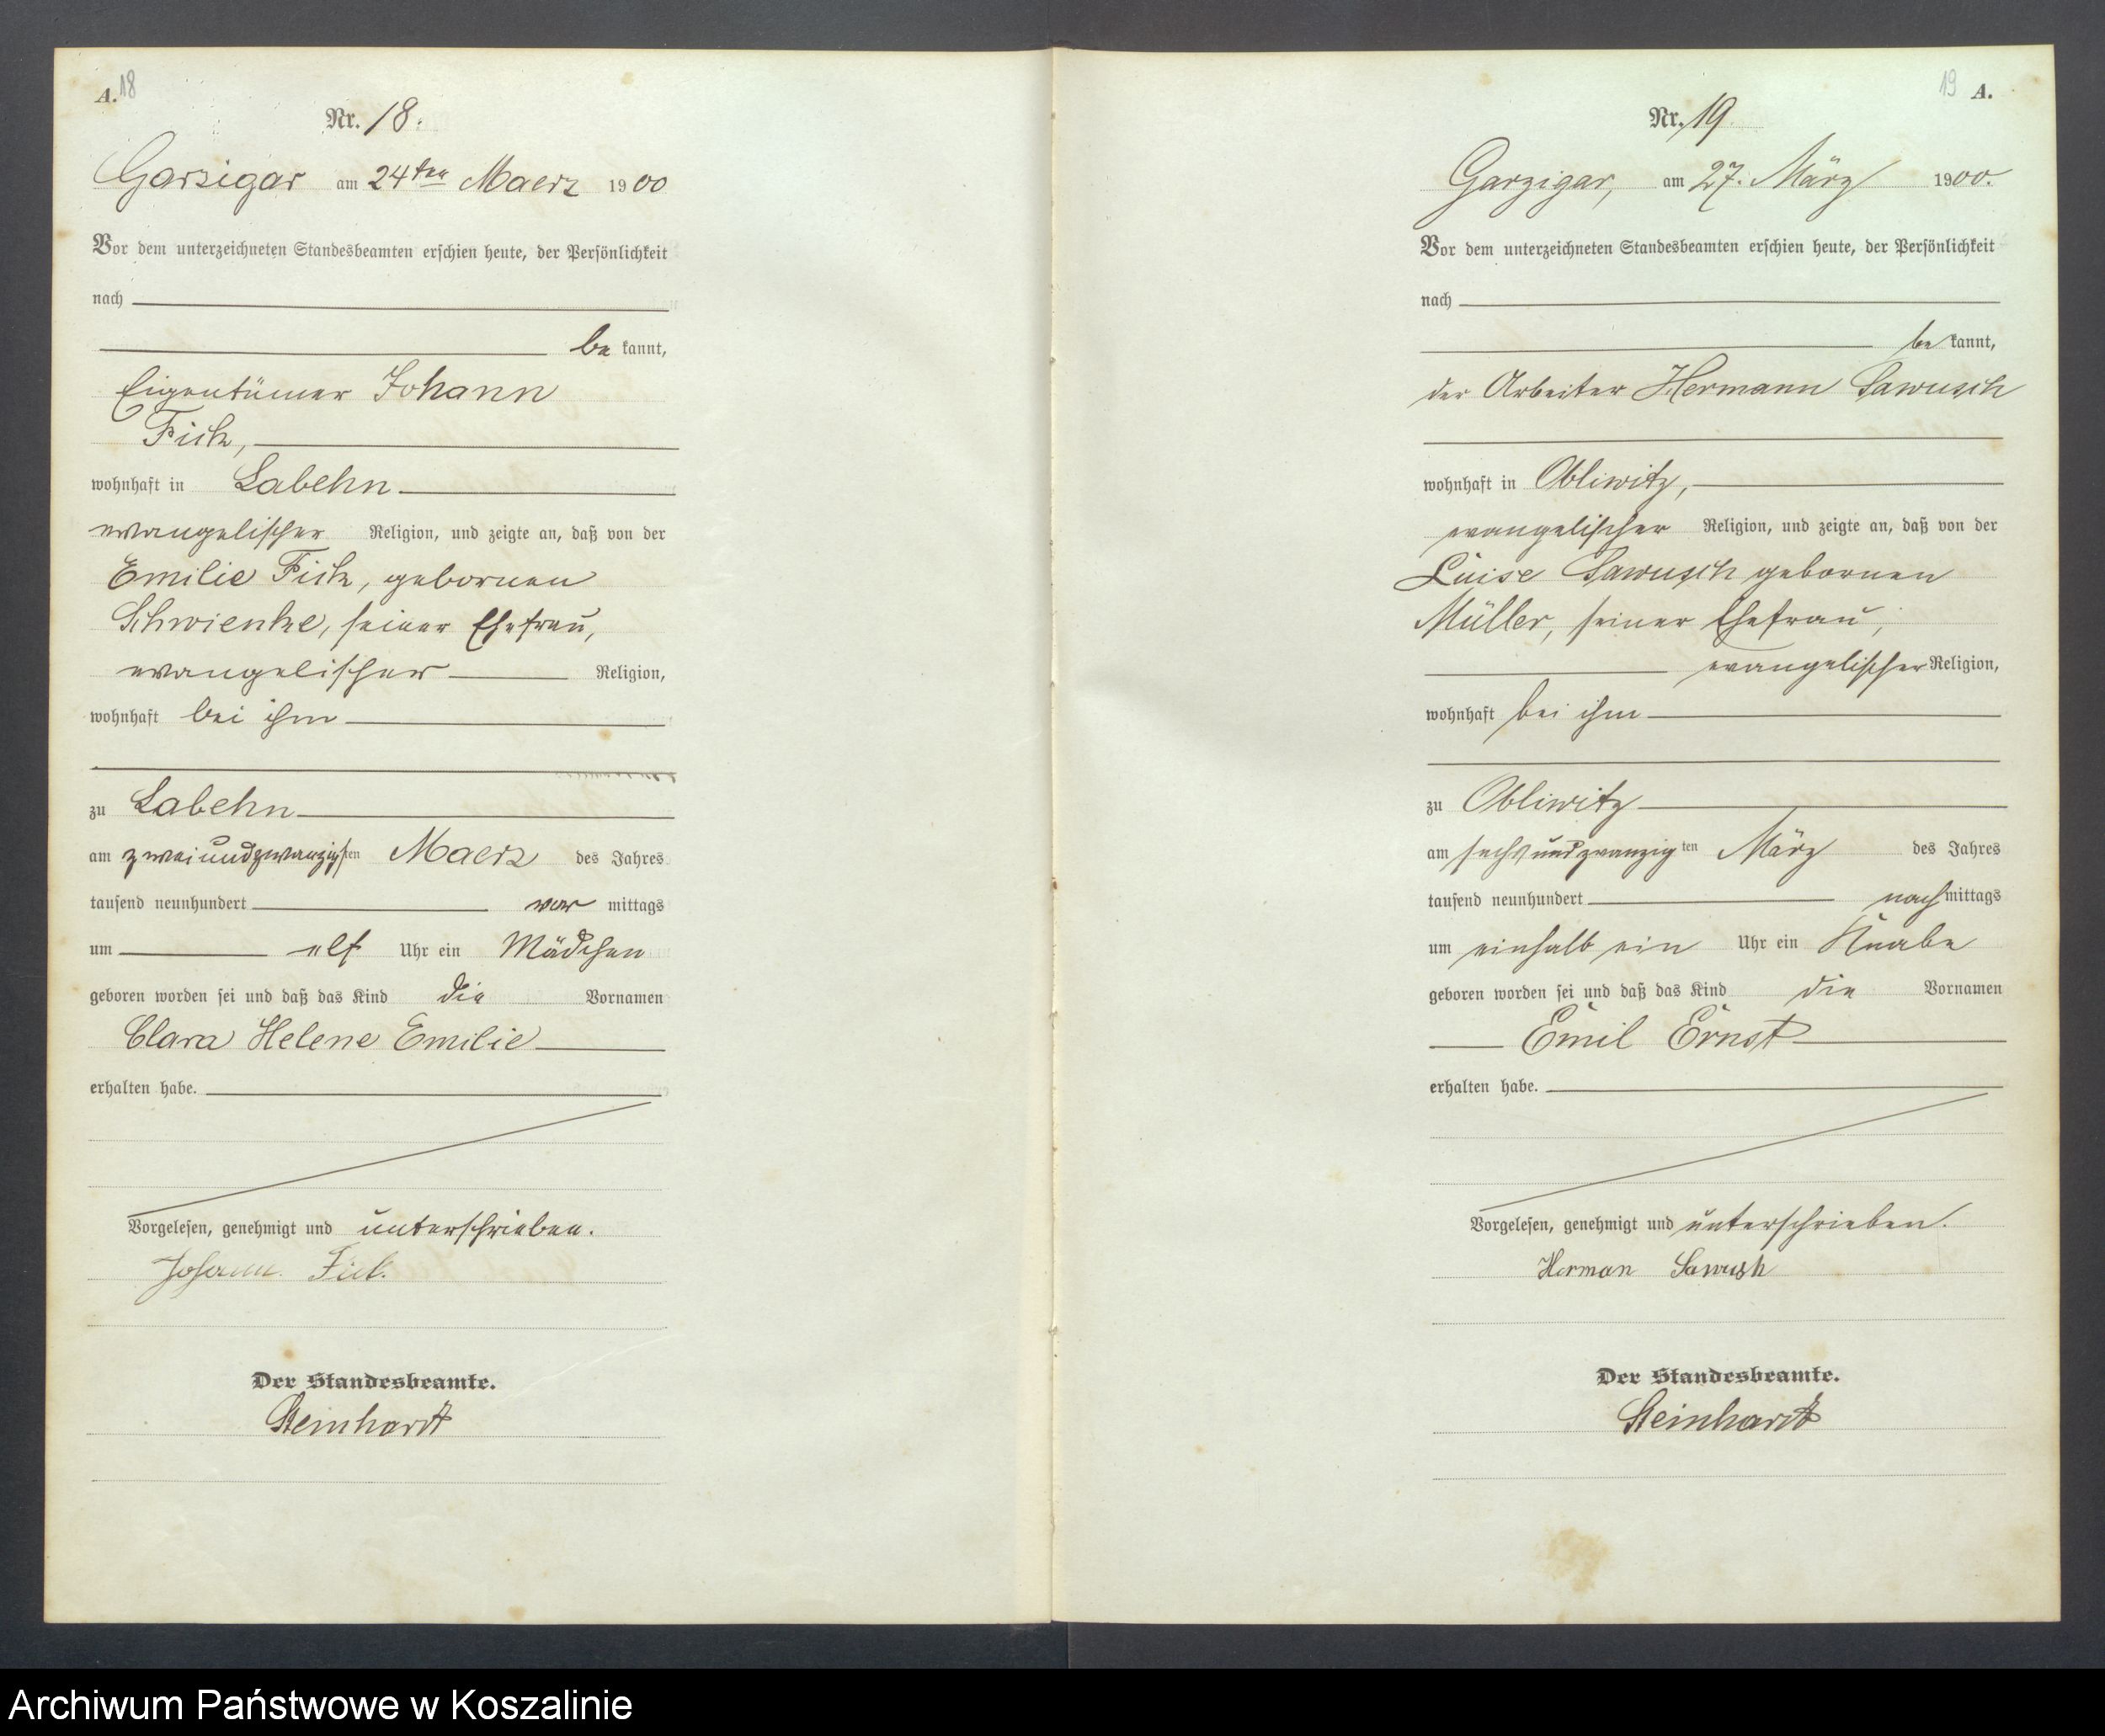 A. 18
Nr. 18.
Garzigar am 24ten Maerz 1900
Vor dem unterzeichneten Standesbeamten erschien heute, der Persönlichkeit
nach
be kannt,
Eigentümer Johann
Fick,
wohnhaft in Labehn
evangelischer Religion, und zeigte an, daß von der
Emilie Fick, gebornen
Schwienke, seiner Ehefrau,
evangelischer Religion,
wohnhaft bei ihm
zu Labehn
am zweiundzwanzigsten Maerz des Jahres
tausend neunhundert vor mittags
um elf Uhr ein Mädchen
geboren worden sei und daß das Kind die Vornamen
Clara Helene Emilie
erhalten habe.
Vorgelesen, genehmigt und unterschrieben.
Johann Fick.
Der Standesbeamte.
Steinhardt
19 A.
Nr. 19
Garzigar, am 27. März 1900.
Vor dem unterzeichneten Standesbeamten erschien heute, der Persönlichkeit
nach
be kannt,
der Arbeiter Hermann Sawusch
wohnhaft in Obliwitz,
evangelischer Religion, und zeigte an, daß von der
Luise Sawusch gebornen
Müller, seiner Ehefrau,
evangelischer Religion,
wohnhaft bei ihm
zu Obliwitz
am sechsundzwanzigten März des Jahres
tausend neunhundert nach mittags
um einhalb ein Uhr ein Knabe
geboren worden sei und daß das Kind die Vornamen
Emil Ernst
erhalten habe.
Vorgelesen, genehmigt und unterschrieben.
Herman Sawush
Der Standesbeamte.
Steinhardt
Archiwum Państwowe w Koszalinie